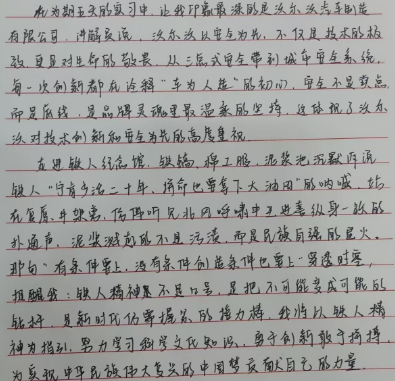 在为期五天的实习中，让我印象最深的是沃尔沃汽车制造
有限公司，讲解员说，沃尔沃以安全为先，不仅是技术的极
致，更是对生命的敬畏。从三点式安全带到城市安全系统，
每一次创新都在诠释“车为人造”的初心，安全不是卖点
而是底线，是品牌灵魂里最温柔的坚持，这体现了沃尔
沃对技术创新和安全为先的高度重视
走进铁人纪念馆，铁锅、棉工服、泥浆池沉默诉说
铁人“宁肯少活二十年，拼命也要拿下大油田”的呐喊，站
在复原井架旁，仿佛听见北风呼啸中王进喜纵身一跃的
扑通声，泥浆溅起的不是污渍，而是民族自强的星火。
那句“有条件要上，没有条件创造条件也要上”穿透时空，
提醒我：铁人精神不是口号，是把不可能变成可能的
钻杆，是新时代仍需握紧的接力棒，我将以铁人精
神为指引，努力学习科学文化知识，勇于创新敢于拼搏
为实现中华民族伟大复兴的中国梦贡献自己的力量.